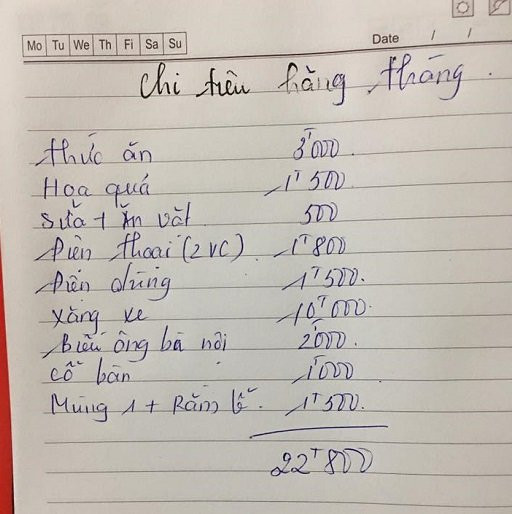 Mo Tu We Th Fi Sa Su
Date / /
Chi tiêu hằng tháng.
Thức ăn 3T000.
Hoa quả 1T500
Sữa + Ăn vặt 500
Điện thoại (2 VC). 1T800
Điện dùng 1T500.
Xăng xe 10T000.
Biếu ông bà nội 2T000.
Cỗ bàn 1T000
Mùng 1 + Rằm lễ. 1T500.
22T800